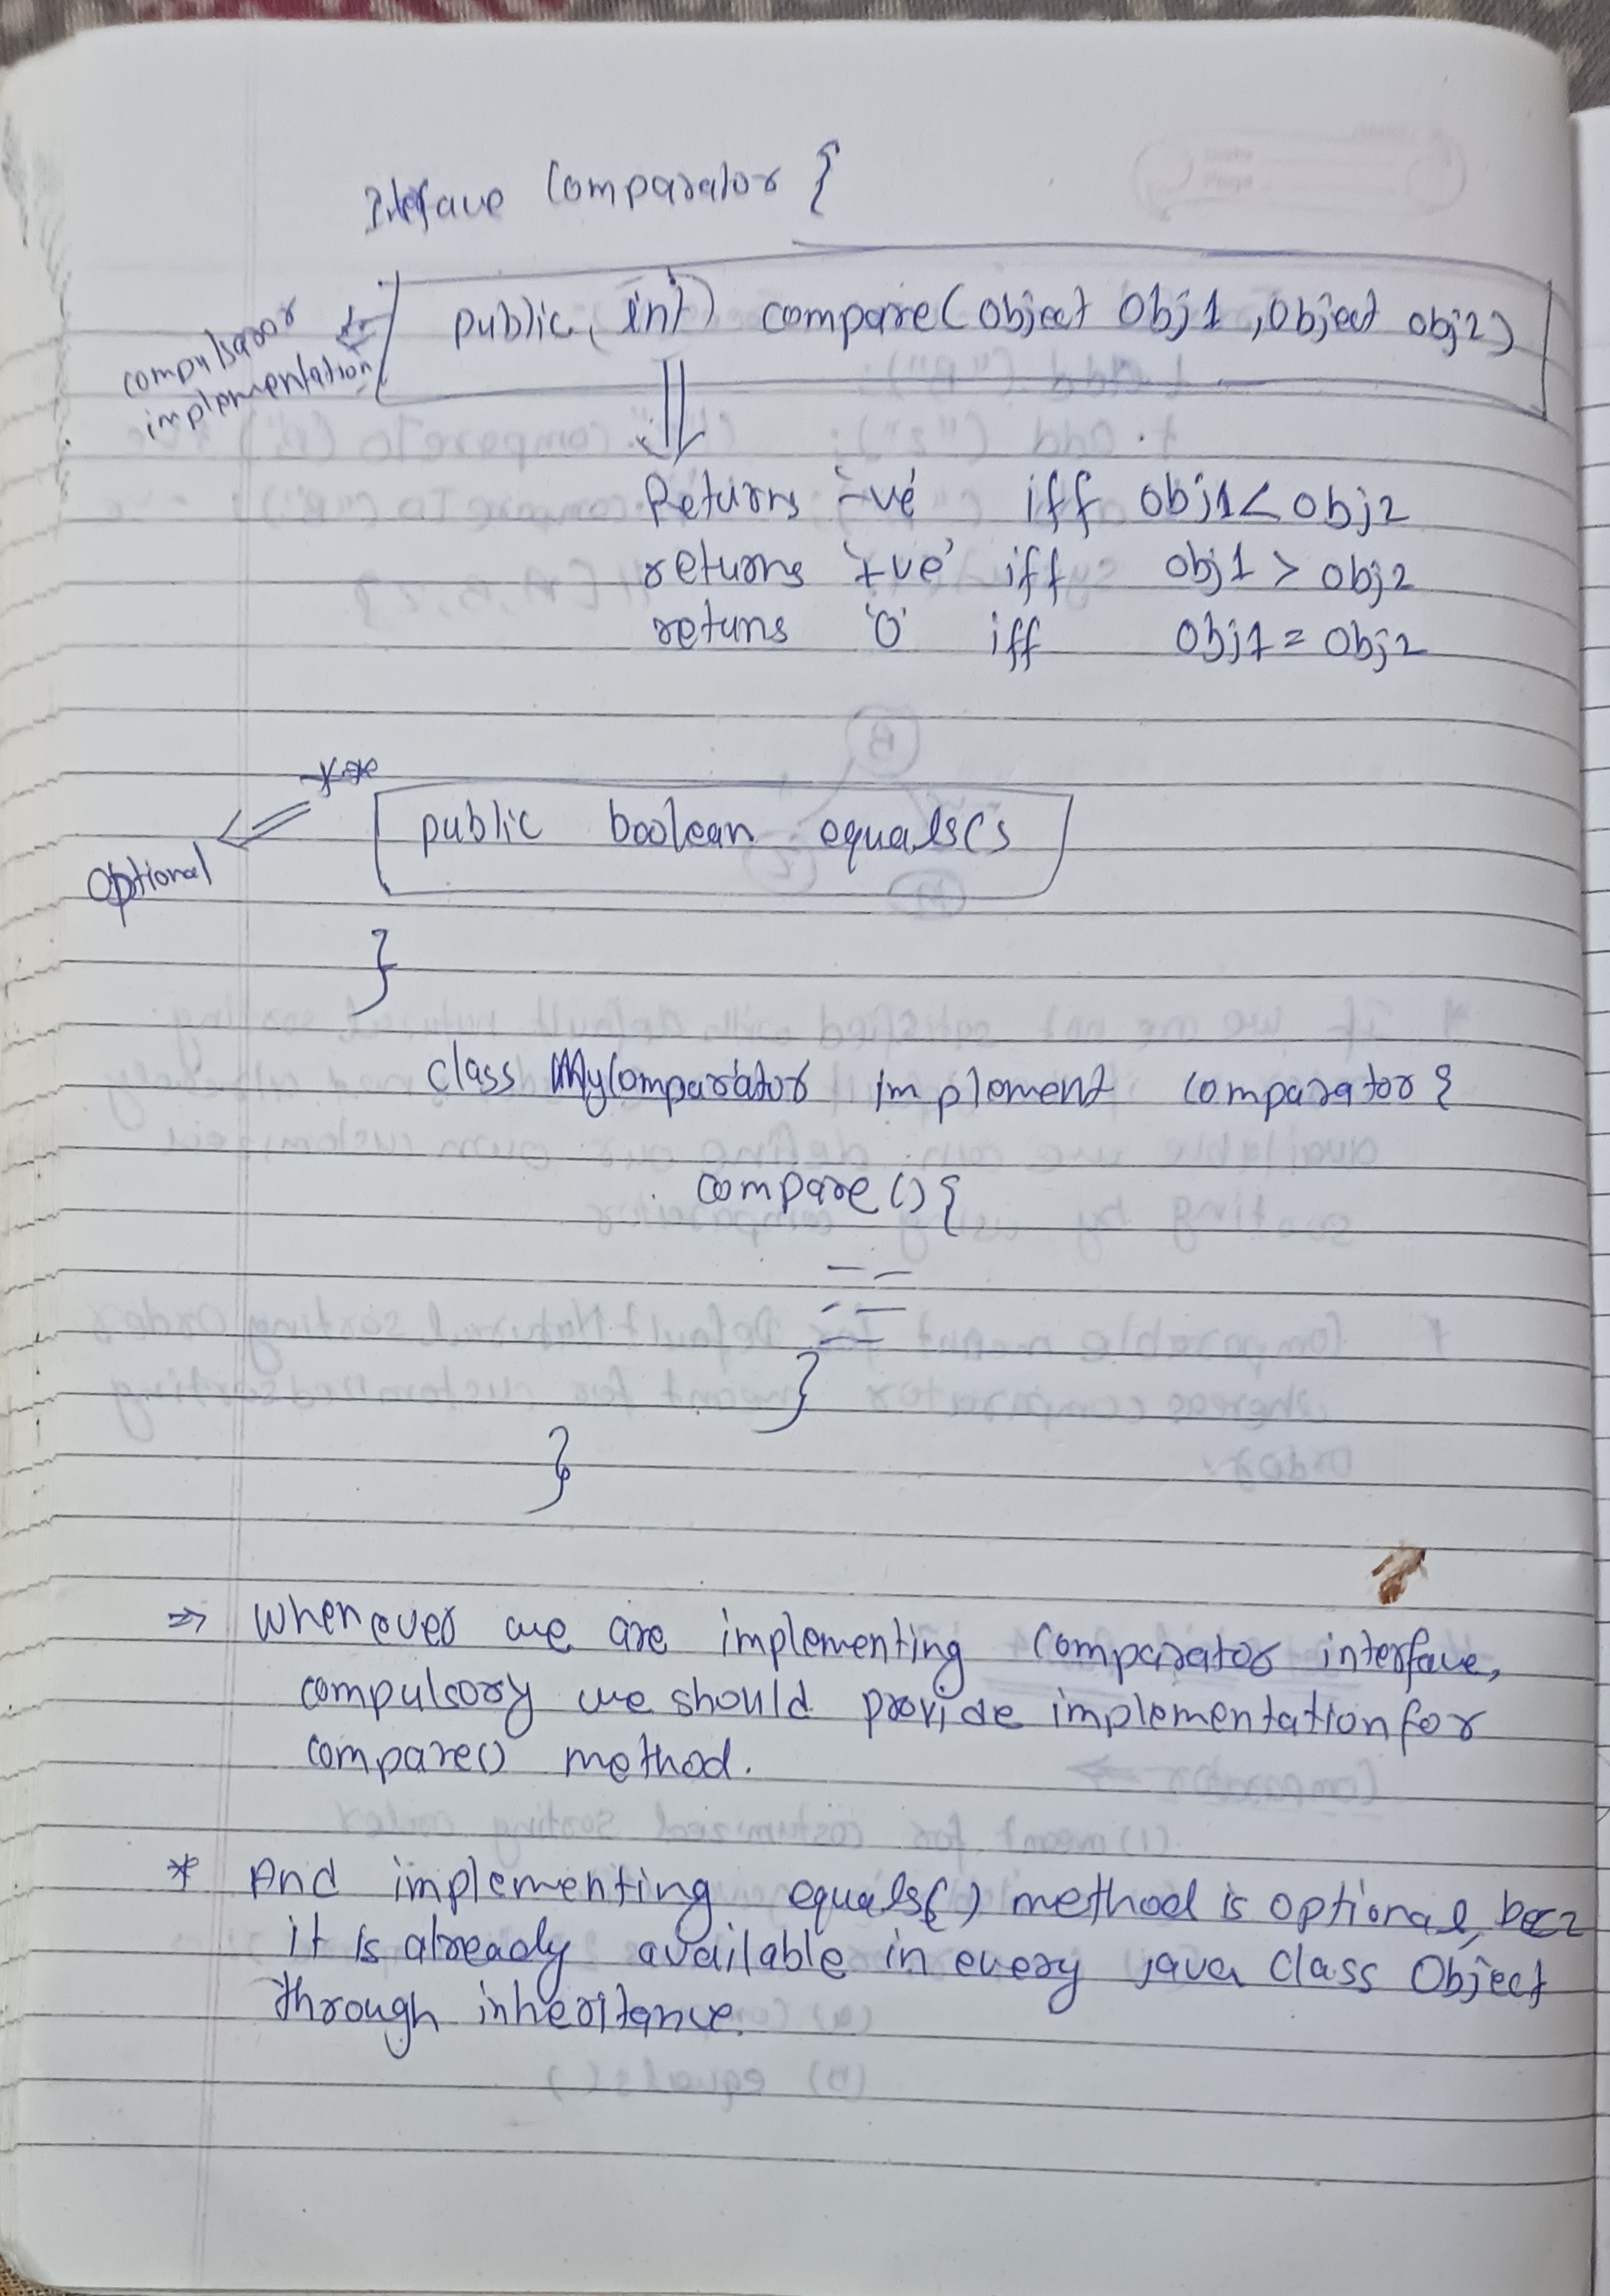 Interface Comparator {
compulsaror
implementation
public int compare(Object Obj1, Object obj2)
Returns '-ve' iff obj1 < obj2
returns '+ve' iff obj1 > obj2
retuns '0' iff Obj1 = Obj2
**
optional
public boolean equals()
}
class MyComparator implement comparator {
compare() {
}
}
⇒ Whenever we are implementing Comparator interface,
compulsory we should provide implementation for
compare() method.
* And implementing equals() method is optional, becz
it is already available in every java class Object
through inheritance.